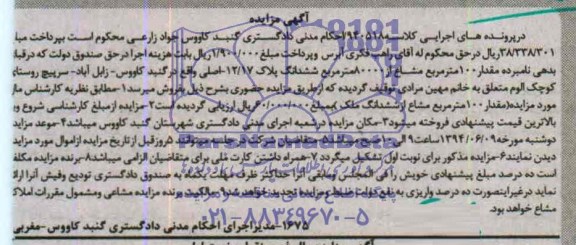 آگهی مزایده
درپرونده های اجرایی کلاسه ۷۹۳۰۵۱۸ احکام مدنی دادگستری گنبد کاووس جواد زارعی محکوم است بپرداخت مبلغ
۳۸/۳۳۸/۳۰۱ ریال در حق محکوم له آقای فکری وپرداخت مبلغ ۱/۹۰۰/۰۰۰ ریال بابت هزینه اجرا در حق صندوق دولت که درقبال
بدهی نامبرده مقدار ۱۰۰ مترمربع مشاع از ۸۰۰۰۰ مترمربع ششدانگ پلاک ۱۲/۷-اصلی واقع در گنبد کاووس- زابل آباد- سرپیچ روستای
کوچک الوم متعلق به خانم مهین مرادی توقیف گردیده که ازطریق مزایده حضوری بشرح ذیل بفروش میرسد ۱-مطابق نظریه کارشناس ملک
مورد مزایده(مقدار ۱۰۰ مترمربع مشاع ازششدانگ ملک )بمبلغ ۶۰/۰۰۰/۰۰۰ ریال ارزیابی گردیده است ۲-مزایده ازمبلغ کارشناسی شروع وبه
بالاترین قیمت پیشنهادی فروخته میشود ۳-مکان مزایده درشعبه اجرای مدنی دادگستری شهرستان گنبد کاووس میباشد ۴-موعد مزایده
دوشنبه مورخه ۱۳۹۴/۰۶/۰۹ ساعت ۹ الی ۱۰ متقاضیان شرکت در جلسه میتوانند ۵ روزقبل از تاریخ مزایده ازاموال مورد مزایده
دیدن نمایند ۶-مزایده مذکور برای نوبت اول تشکیل میگردد ۷-همراه داشتن کارت ملی برای متقاضیان الزامی میباشد ۸-برنده مزایده مکلف
است ده درصد مبلغ پیشنهادی خویش را فی المجلس ومابقی را حداکثر ظرف یکماه به صندوق دادگستری تودیع وفیش آنرا ارائه
نماید درغیراینصورت ده درصد واریزی به نفع دولت ضبط ومزایده تجدید خواهد شد ۹-مالکیت برنده مزایده مشاعی ومشمول مقررات املاک
مشاع خواهد بود.
۱۶۷۵-مدیراجرای احکام مدنی دادگستری گنبد کاووس-مقربی
۰۲۱-۸۸۳۴۹۶۷۰-۵